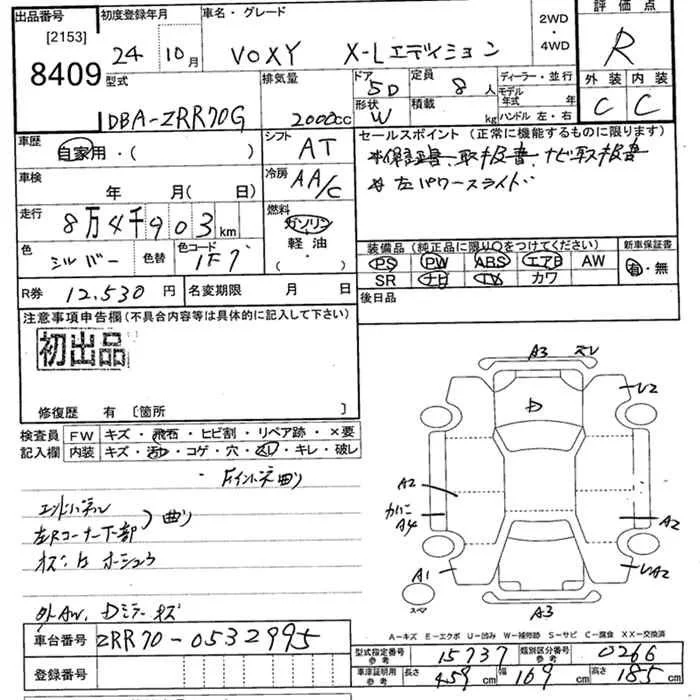 出品番号 [2153] 8409
初度登録年月 24年 10月
車名・グレード VOXY X-Lエディション
2WD・4WD
評価点 R
外装 C 内装 C
型式 DBA-ZRR70G
排気量 2000cc
ドア 5D 形状 W
定員 8人 積載 kg
ディーラー・並行
モデル年式 年
ハンドル 左・右
車歴 自家用・( )
シフト AT
車検 年 月(日)
冷房 AA/C
走行 8万4千903km
燃料 ガソリン 軽油 ・( )
色 シルバー 色替 色コード 1F7
R券 12,530円 名変期限 月 日
セールスポイント (正常に機能するものに限ります)
*保証書、取扱書、ナビ取扱書
* 左パワースライド
装備品 (純正品に限り○をつけてください) 新車保証書
PS PW ABS エアB AW 有・無
SR ナビ TV カワ
後日品
注意事項申告欄(不具合内容等は具体的に記入して下さい)
初出品
修復歴 有 〔箇所 〕
検査員記入欄 FW キズ・飛石・ヒビ割・リペア跡・×要
内装 キズ・汚れ・コゲ・穴・スレ・キレ・破レ
Fインパネ曲り
エンドパネル
左Rコーナー下部 曲り
外AW、Dミラーキズ
車台番号 ZRR70-0532995
登録番号
A3 スレ
D
A2
A4
A2
A1
A3
スペア
A-キズ E-エクボ U-凹み W-補修跡 S-サビ C-腐食 XX-交換済
型式指定番号 参考 15737 類別区分番号 参考 0266
車庫証明用 参考 長さ 459cm 幅 169cm 高さ 185cm